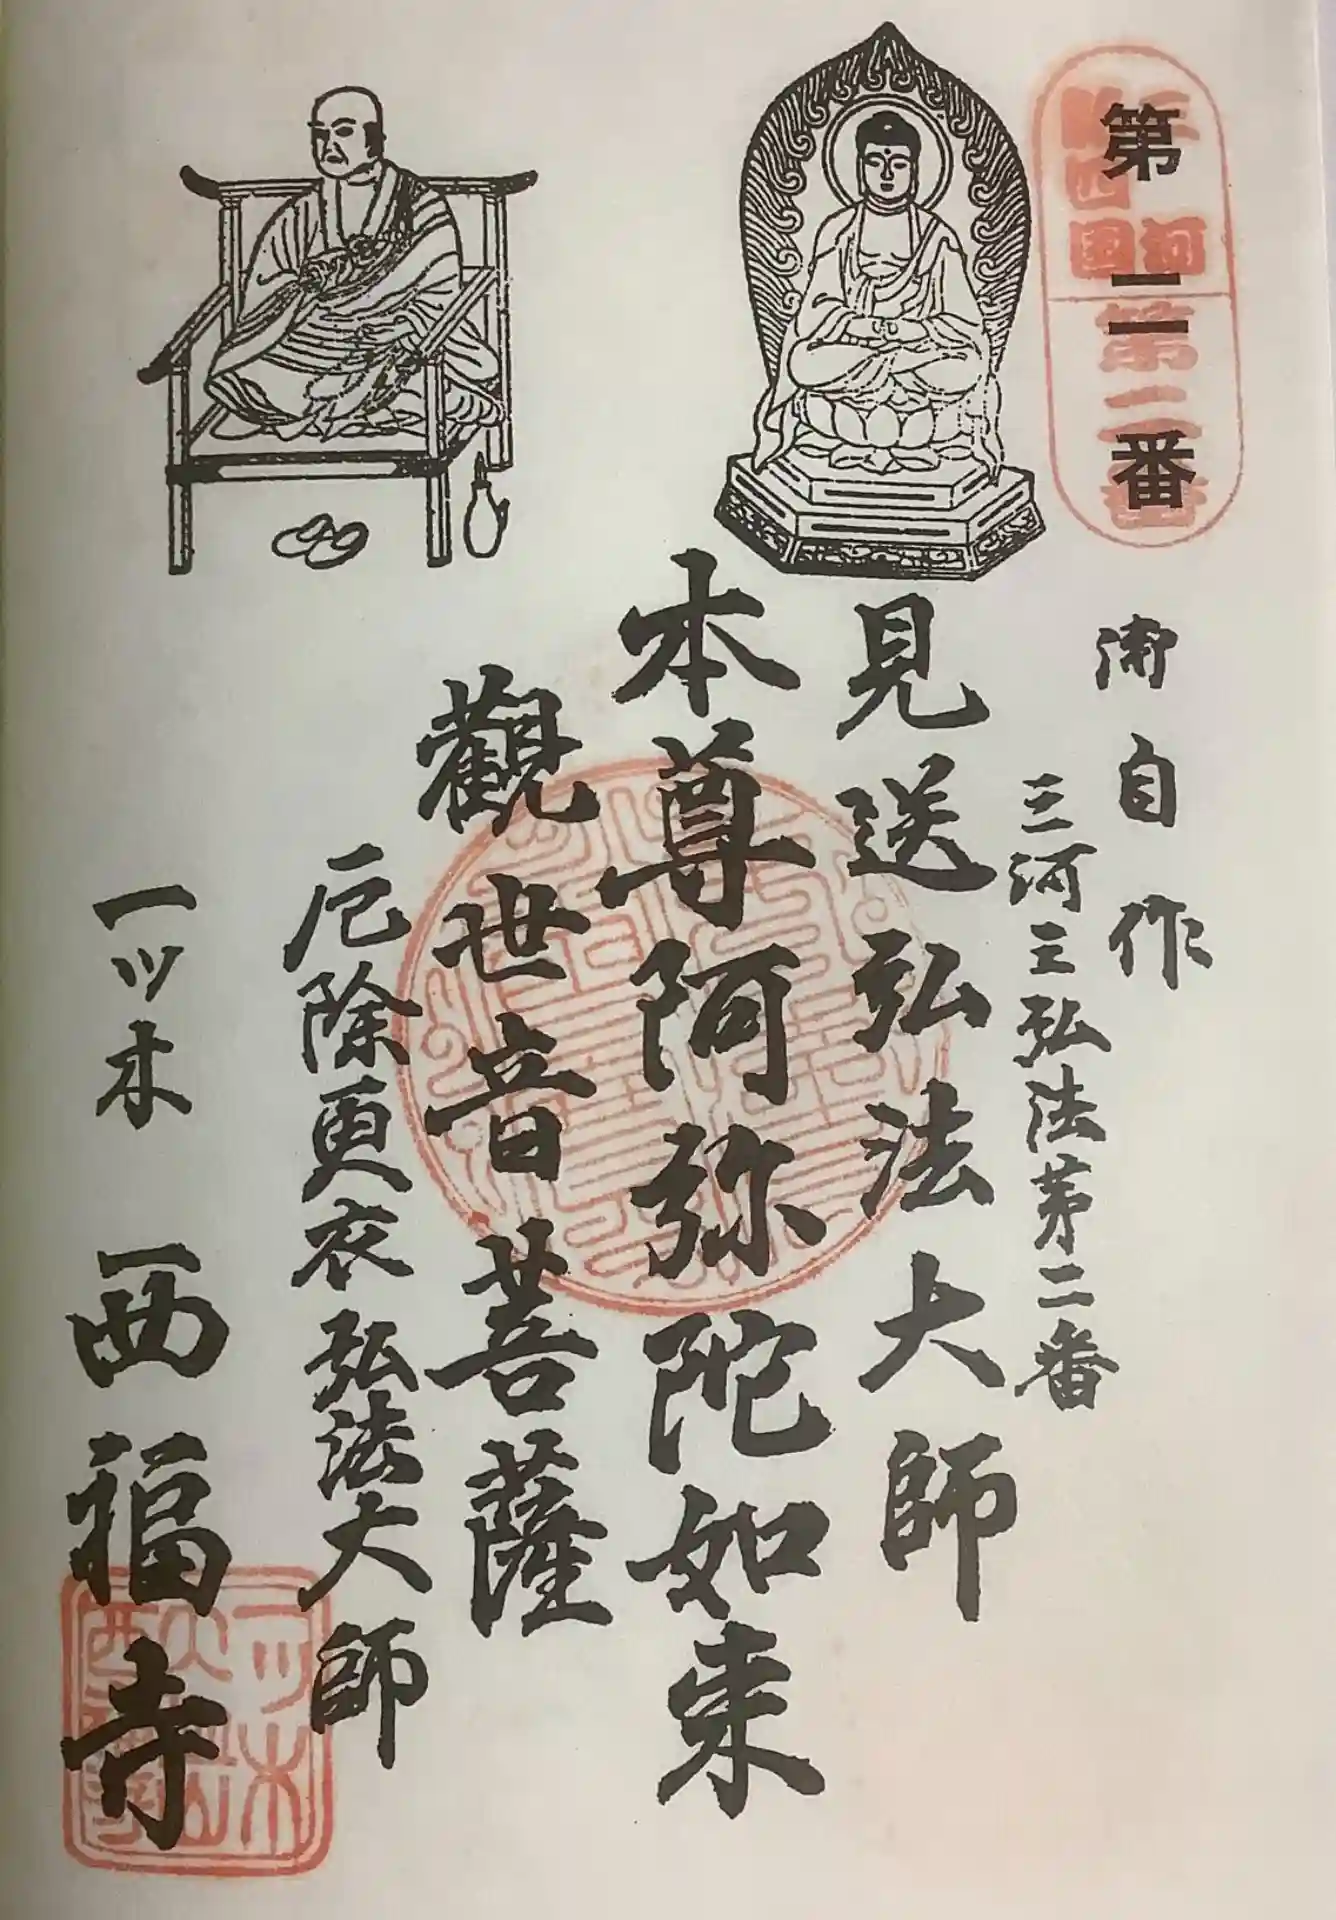 第二番
三河
新四国
第二番
御自作
三河三弘法第二番
見送弘法大師
本尊阿弥陀如来
觀世音菩薩
厄除更衣弘法大師
一ツ木 西福寺
一ツ木
西福寺